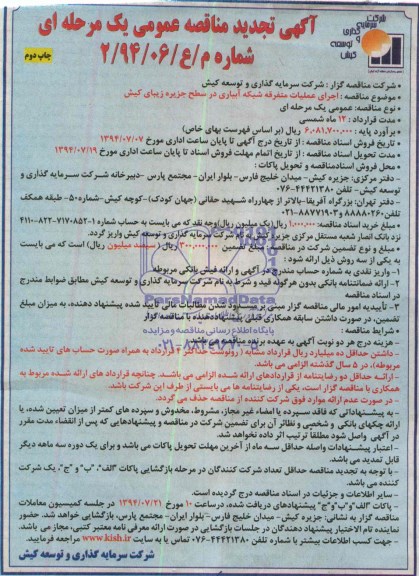 شرکت
سرمایه
گذاری
و
توسعه
کیش
آگهی تجدید مناقصه عمومی یک مرحله ای
شماره م/ع/۲/۹۴/۰۶
چاپ دوم
شرکت مناقصه گزار: شرکت سرمایه گذاری و توسعه کیش
موضوع مناقصه: اجرای عملیات متفرقه شبکه آبیاری در سطح جزیره زیبای کیش
نوع مناقصه: عمومی یک مرحله ای
مدت قرارداد: ۱۲ ماه شمسی
برآورد پایه: ۶,۰۸۱,۷۰۰,۰۰۰ ریال (بر اساس فهرست بهای خاص)
تاریخ فروش اسناد مناقصه: از تاریخ درج آگهی تا پایان ساعت اداری مورخ ۱۳۹۴/۰۷/۰۷
مدت تحویل اسناد مناقصه: از تاریخ اتمام مهلت فروش اسناد تا پایان ساعت اداری مورخ ۱۳۹۴/۰۷/۱۹
محل فروش اسنادمناقصه و تحویل پاکات:
- دفتر مرکزی: جزیره کیش- میدان خلیج فارس- بلوار ایران- مجتمع پارس -دبیرخانه شرکت سرمایه گذاری و
توسعه کیش- تلفن ۴۴۴۲۱۳۸۰-۰۷۶
- دفتر تهران: بزرگراه آفریقا-بالاتر از چهارراه شهید حقانی (جهان کودک)-کوچه کیش-شماره۵۰- طبقه همکف
تلفن: ۸۸۸۸۰۲۶۰ و ۸۸۷۷۱۹۰۳-۰۲۱
مبلغ خرید اسناد مناقصه: ۱,۰۰۰,۰۰۰ ریال(یک میلیون ریال)وجه نقد که می بایست به حساب شماره
نزد بانک انصار شعبه مستقل مرکزی جزیره کیش به نام شرکت سرمایه گذاری و توسعه کیش واریز گردد.
مبلغ و نوع تضمین شرکت در مناقصه: مبلغ تضمین ۳۰۰,۰۰۰,۰۰۰ ریال (سیصد میلیون ریال) است که می بایست
به یکی از سه روش ذیل ارائه شود:
۱- واریز نقدی به شماره حساب مندرج در آگهی و ارائه فیش بانکی مربوطه
۲- ارائه ضمانتنامه بانکی بدون هرگونه قید و شرط به نام شرکت سرمایه گذاری و توسعه کیش مطابق ضوابط مندرج
در اسناد مناقصه
۳- تأییدیه امور مالی مناقصه گزار مبنی بر مسدود شدن مطالبات مالی تایید شده پیشنهاد دهنده، به میزان مبلغ
تضمین، در صورت داشتن سابقه همکاری قبلی پیشنهاددهنده با مناقصه گزار
شرایط مناقصه:
- هزینه درج هر دو نوبت آگهی به عهده برنده مناقصه می باشد.
- داشتن حداقل ده میلیارد ریال قرارداد مشابه (رونوشت حداکثر ۴ قرارداد به همراه صورت حساب های تایید شده
مربوطه)، در ۵ سال گذشته الزامی می باشد.
- ارائه حداقل دو رضایتنامه از قراردادهای ارائه شده الزامی می باشد. چنانچه قرارداد های ارائه شده مربوط به
همکاری با مناقصه گزار است، یکی از رضایتنامه ها می بایستی از طرف این شرکت باشد.
- در صورت عدم ارائه موارد فوق شرکت کننده از مناقصه حذف می گردد.
- به پیشنهاداتی که فاقد سپرده یا امضاء غیر مجاز، مشروط، مخدوش و سپرده های کمتر از میزان تعیین شده، یا
ارائه چکهای بانکی و شخصی و نظائر آن برای تضمین شرکت در مناقصه و پیشنهادهایی که پس از انقضاء مدت مقرر
در آگهی واصل شود مطلقاً ترتیب اثر داده نخواهد شد.
- اعتبار پیشنهادات واصله حداقل سه ماه از آخرین مهلت تحویل پاکات می باشد و برای یک دوره سه ماهه دیگر
قابل تمدید می باشد.
- با توجه به تجدید مناقصه حداقل تعداد شرکت کنندگان در مرحله بازگشایی پاکات "الف"، "ب" و "ج"، یک شرکت
کننده می باشد.
- سایر اطلاعات و جزئیات در اسناد مناقصه درج گردیده است.
- پاکات "الف"و"ب"و"ج" پیشنهادهای دریافت شده، درساعت ۱۰ مورخ ۱۳۹۴/۰۷/۲۱ در جلسه کمیسیون معاملات
مناقصه گزار به نشانی: جزیره کیش- میدان خلیج فارس- بلوار ایران- مجتمع پارس، بازگشایی خواهد شد. حضور
نماینده تام الاختیار پیشنهاد دهندگان در جلسات بازگشایی در صورت ارائه معرفی نامه معتبر کتبی، مجاز می باشد.
- جهت کسب اطلاعات بیشتر با شماره تلفن ۴۴۴۲۱۳۸۰-۰۷۶ تماس یا به سایت www.kish.ir مراجعه فرمایید.
شرکت سرمایه گذاری و توسعه کیش
ParsNamadData
پایگاه اطلاع رسانی مناقصه و مزایده